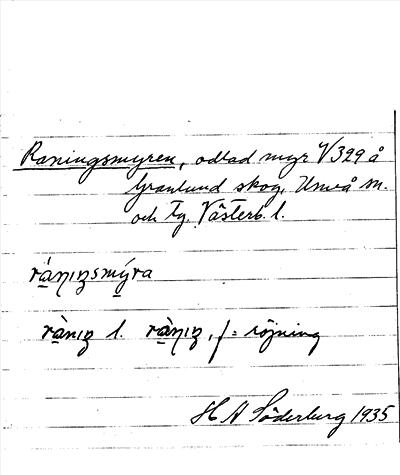 Raningsmyren, odlad myr V 329 å
Granlund skog, Umeå sn.
och tg. Västerb. l.
ra̱ŋıŋsmýra
rà̱nıŋ l. rà̱ŋıŋ, f. = röjning
H A Söderberg 1935